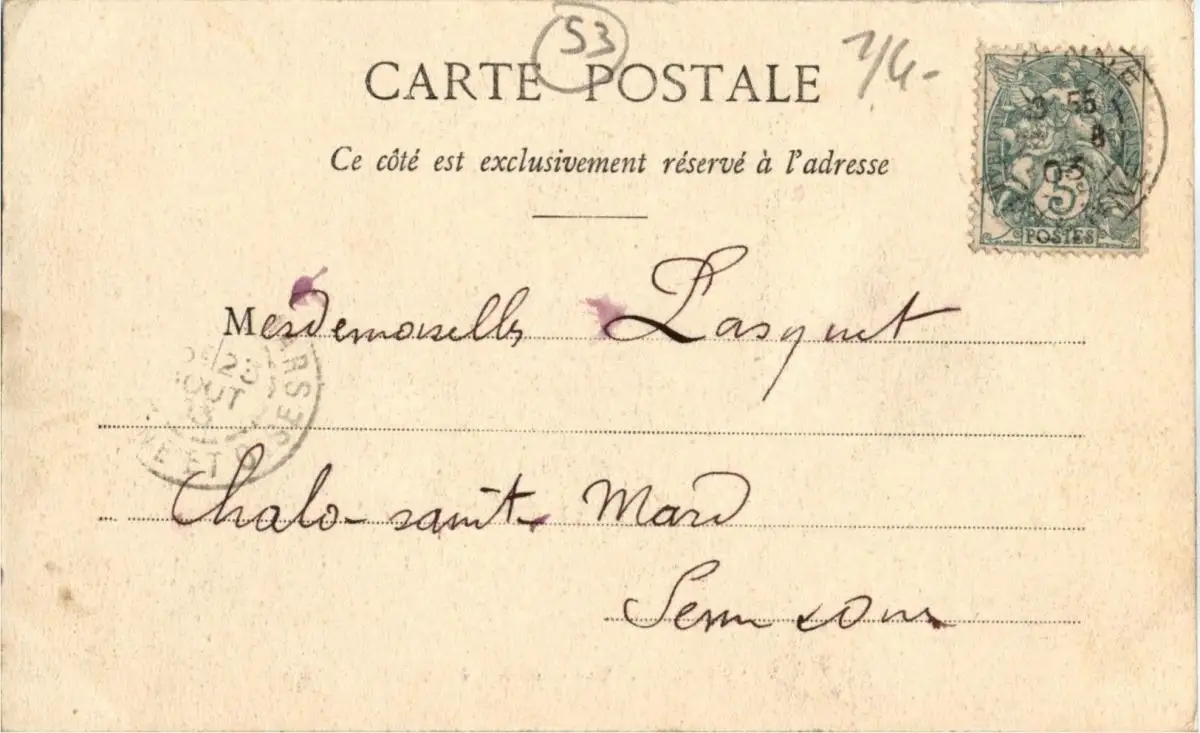 53
7/4-
CARTE POSTALE
Ce côté est exclusivement réservé à l'adresse
3 55
8
03
5c
POSTES
Mesdemoiselles Lasquet
23
AOUT
ET OISE
Chalo-saint Mard